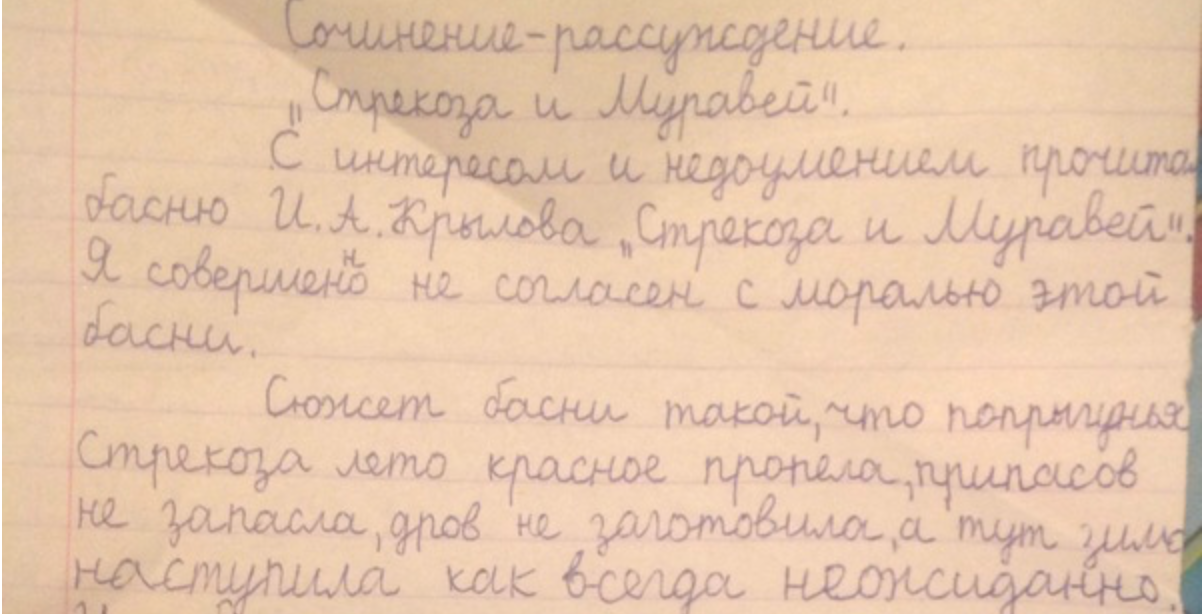 Сочинение-рассуждение.
„Стрекоза и Муравей".
С интересом и недоумением прочитал
басню И.А.Крылова „Стрекоза и Муравей".
Я совершенно не согласен с моралью этой
басни.
Сюжет басни такой, что попрыгунья
Стрекоза лето красное пропела, припасов
не запасла, дров не заготовила, а тут зима
наступила как всегда неожиданно.